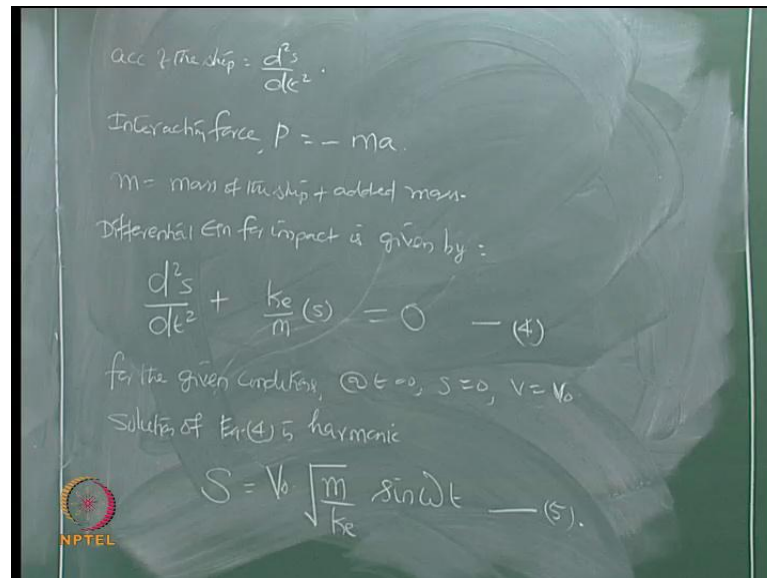 acc of the ship = d²s/dt².
Interaction force, P = - ma.
m = mass of the ship + added mass.
Differential Eqn for impact is given by :
d²s/dt² + ke/m (s) = 0 — (4)
for the given conditions, @ t=0, s=0, V = V₀
Solution of Eq.(4) is harmonic
S = V₀ √(m/ke) sin ωt — (5).
NPTEL